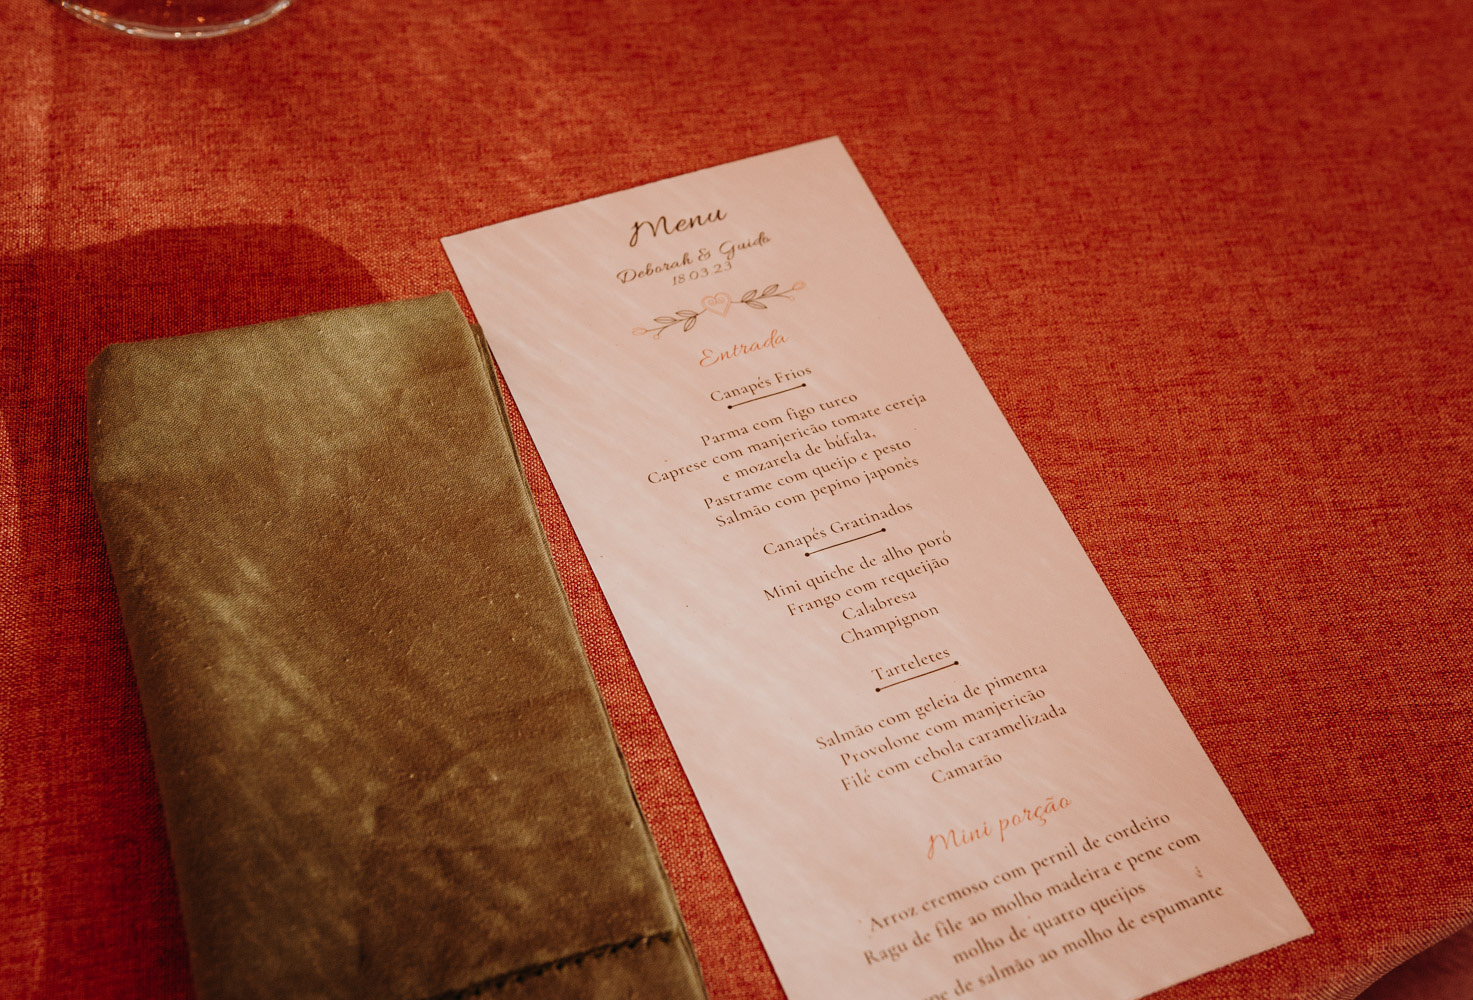 Menu
Deborah & Guido
18 03 23
Entrada
Canapés Frios
Parma com figo turco
Caprese com manjericão tomate cereja
e mozarela de búfala,
Pastrame com queijo e pesto
Salmão com pepino japonês
Canapés Gratinados
Mini quiche de alho poró
Frango com requeijão
Calabresa
Champignon
Tarteletes
Salmão com geleia de pimenta
Provolone com manjericão
Filé com cebola caramelizada
Camarão
Mini porção
Arroz cremoso com pernil de cordeiro
Ragu de file ao molho madeira e pene com
molho de quatro queijos
de salmão ao molho de espumante